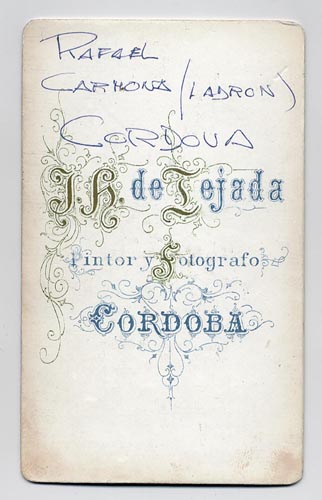 RAFAEL
CARMONA (LADRON)
CORDOVA
J. H. de Tejada
Pintor y Fotografo
CORDOBA